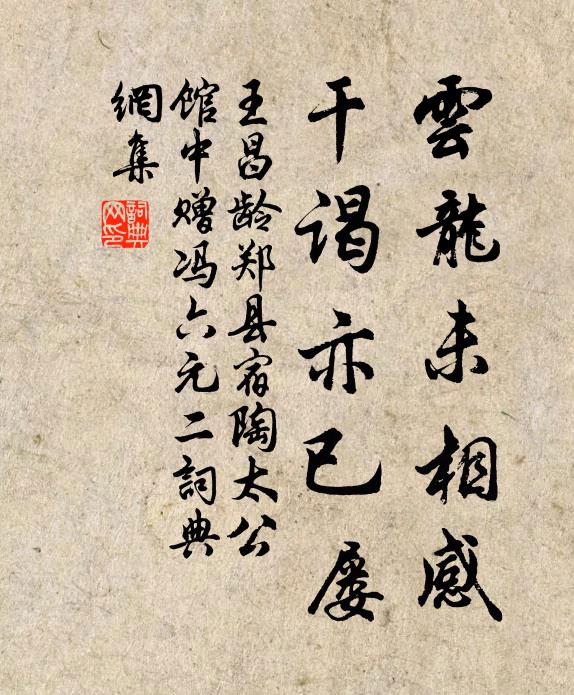 雲龍未相感
干谒亦已屡
王昌龄郑县宿陶太公
馆中赠冯六元二詞典
網集
詞典
网印